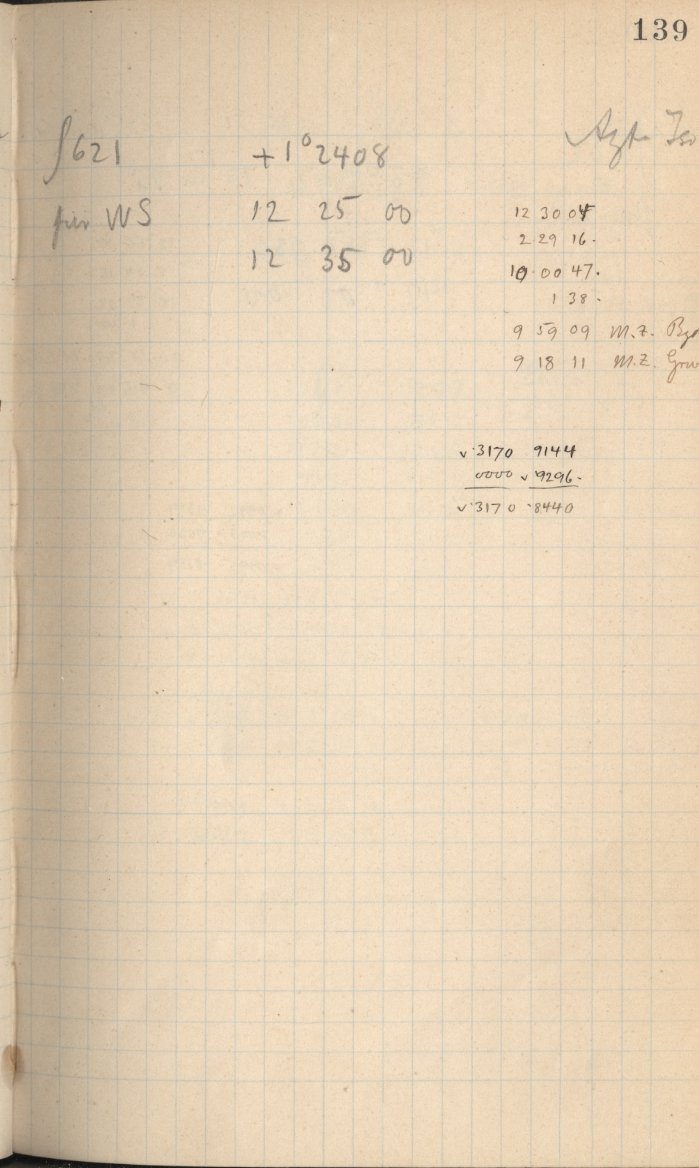 139
∫621 +1°2408
für WS 12 25 00
12 35 00
12 30 04
2 29 16.
10 00 47.
1 38.
9 59 09 M.Z.
9 18 11 M.Z.
v.3170 9144
0000 v 9296.
v.3170 .8440